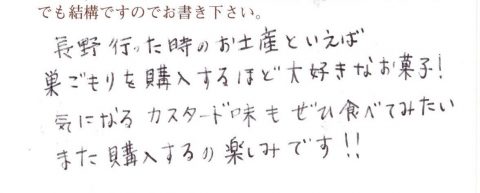 でも結構ですのでお書き下さい。
長野行った時のお土産といえば
巣ごもりを購入するほど大好きなお菓子!
気になるカスタード味もぜひ食べてみたい
また購入するの楽しみです!!